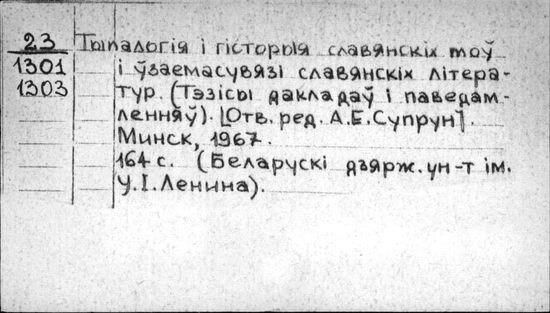 23 Тыпалогія і гісторыя славянскіх моў
1301 і ўзаемасувязі славянскіх літера-
1303 тур. (Тэзісы дакладаў і паведам-
ленняў). [Отв. ред. А.Е.Супрун].
Минск, 1967.
164 с. (Беларускі дзярж. ун-т ім.
У.І.Ленина).